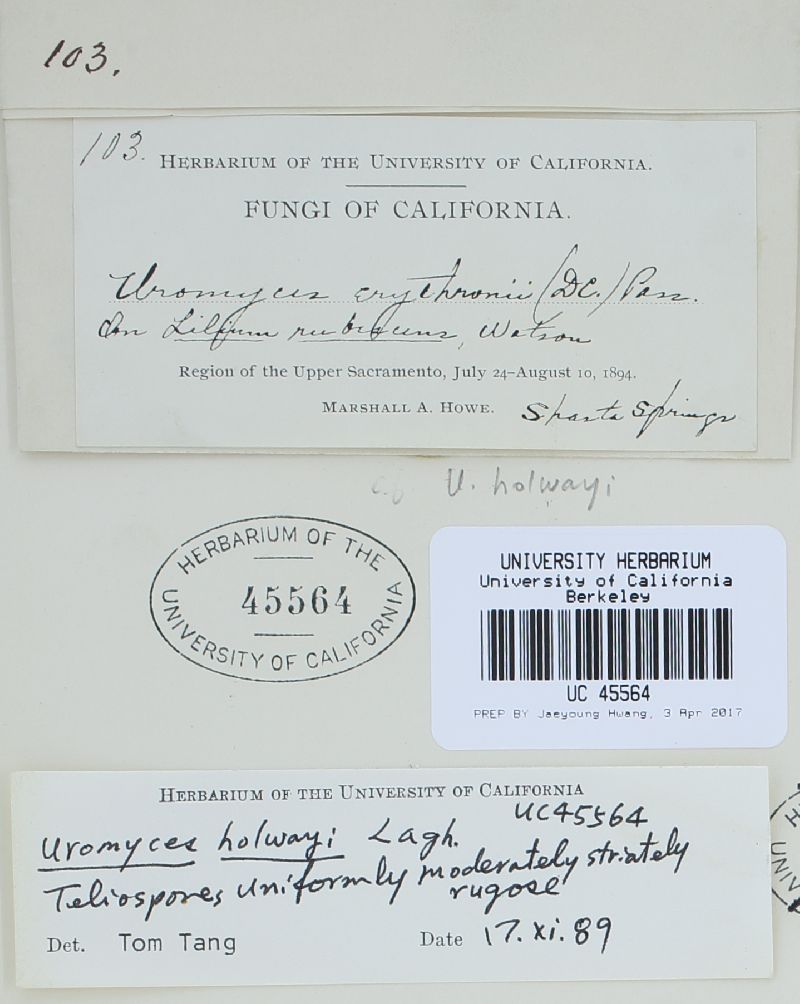 103.
103.
HERBARIUM OF THE UNIVERSITY OF CALIFORNIA.
FUNGI OF CALIFORNIA.
Uromyces erythronii (DC.) Pass.
On Lilium rubescens, Watson
Region of the Upper Sacramento, July 24–August 10, 1894.
MARSHALL A. HOWE. Shasta Springs
cf U. holwayi
HERBARIUM OF THE
45564
UNIVERSITY OF CALIFORNIA
UNIVERSITY HERBARIUM
University of California
Berkeley
UC 45564
PREP BY Jaeyoung Hwang, 3 Apr 2017
HERBARIUM OF THE UNIVERSITY OF CALIFORNIA
UC45564
Uromyces holwayi Lagh.
Teliospores uniformly moderately striately
rugose
Det. Tom Tang Date 17.xi.89